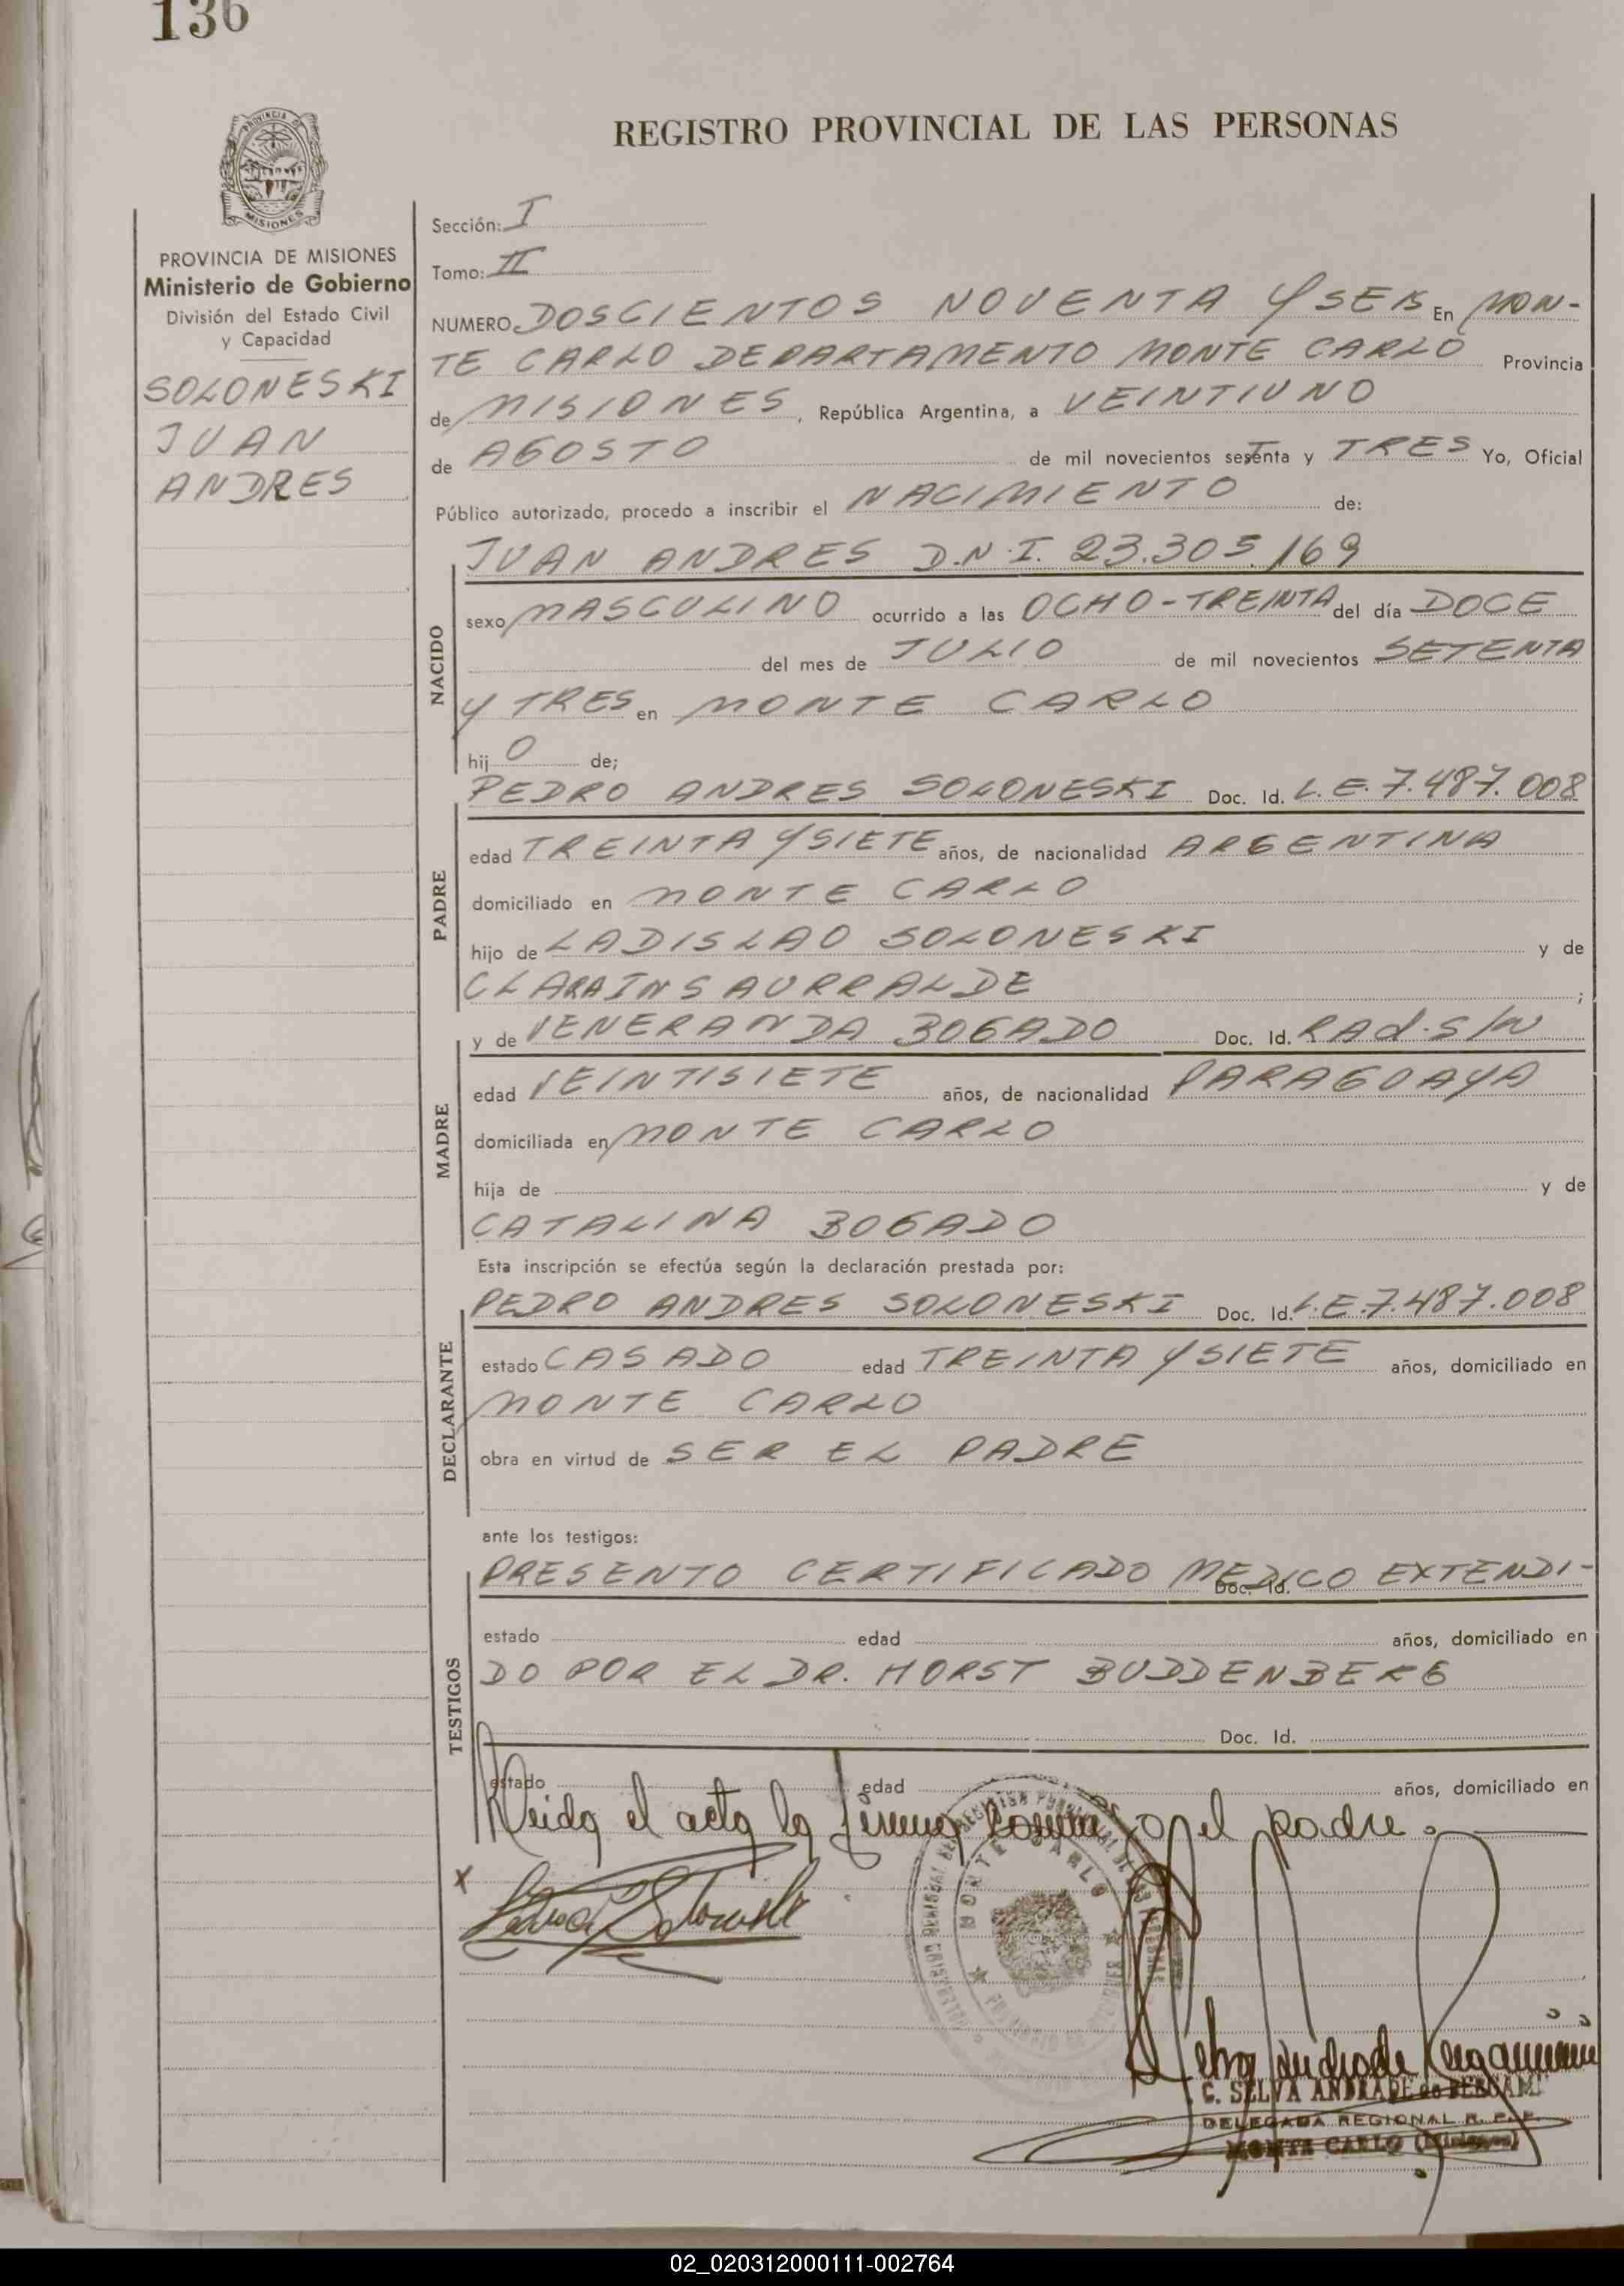 136
REGISTRO PROVINCIAL DE LAS PERSONAS
PROVINCIA DE
MISIONES
PROVINCIA DE MISIONES
Ministerio de Gobierno
División del Estado Civil
y Capacidad
SOLONESKI
JUAN
ANDRES
Sección: I
Tomo: II
NUMERO DOSCIENTOS NOVENTA Y SEIS En MON-
TE CARLO DEPARTAMENTO MONTE CARLO Provincia
de MISIONES, República Argentina, a VEINTIUNO
de AGOSTO de mil novecientos setenta y TRES Yo, Oficial
Público autorizado, procedo a inscribir el NACIMIENTO de:
NACIDO
JUAN ANDRES D.N.I. 23.305.169
sexo MASCULINO ocurrido a las OCHO-TREINTA del día DOCE
del mes de JULIO de mil novecientos SETENTA
Y TRES en MONTE CARLO
hij O de;
PADRE
PEDRO ANDRES SOLONESKI Doc. Id. L.E. 7.487.008
edad TREINTA Y SIETE años, de nacionalidad ARGENTINA
domiciliado en MONTE CARLO
hijo de LADISLAO SOLONESKI y de
CLARA INSAURRALDE ;
MADRE
y de VENERANDA BOGADO Doc. Id. RAd. S/N
edad VEINTISIETE años, de nacionalidad PARAGUAYA
domiciliada en MONTE CARLO
hija de y de
CATALINA BOGADO
Esta inscripción se efectúa según la declaración prestada por:
DECLARANTE
PEDRO ANDRES SOLONESKI Doc. Id. L.E. 7.487.008
estado CASADO edad TREINTA Y SIETE años, domiciliado en
MONTE CARLO
obra en virtud de SER EL PADRE
ante los testigos:
TESTIGOS
PRESENTO CERTIFICADO MEDICO EXTENDI- Doc. Id.
estado edad años, domiciliado en
DO POR EL DR. HORST BUDDENBERG
Doc. Id.
estado edad años, domiciliado en
Leida el acta la firma el padre.
x
MONTE CARLO
C. SELVA ANDRADE de BERGAMI
DELEGADA REGIONAL R. P. P.
MONTE CARLO (Misiones)
02_020312000111-002764